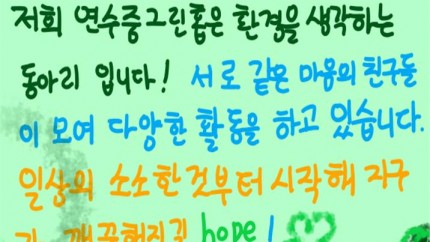 저희 연수중그린홉은 환경을 생각하는
동아리 입니다! 서로 같은 마음의 친구들
이 모여 다양한 활동을 하고 있습니다.
일상의 소소한것부터 시작해 지구
가 깨끗해지길 hope!